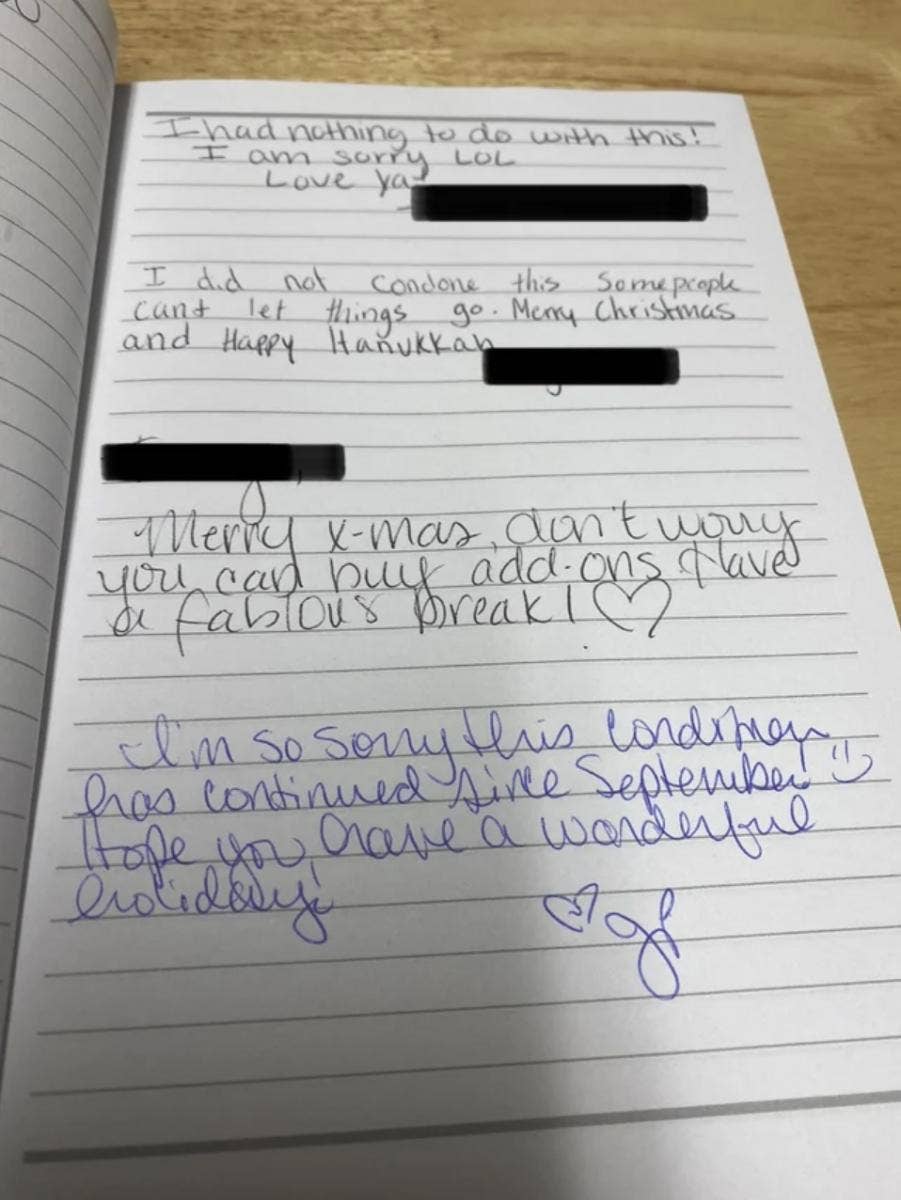 I had nothing to do with this!
I am sorry LOL
Love ya!
I did not condone this Some people
cant let things go. Merry Christmas
and Happy Hanukkah
Merry x-mas, don't worry
you can buy add-ons. Have
a fablous break! ♡
I'm so sorry this condition
has continued since September! :)
Hope you have a wonderful
holiday!